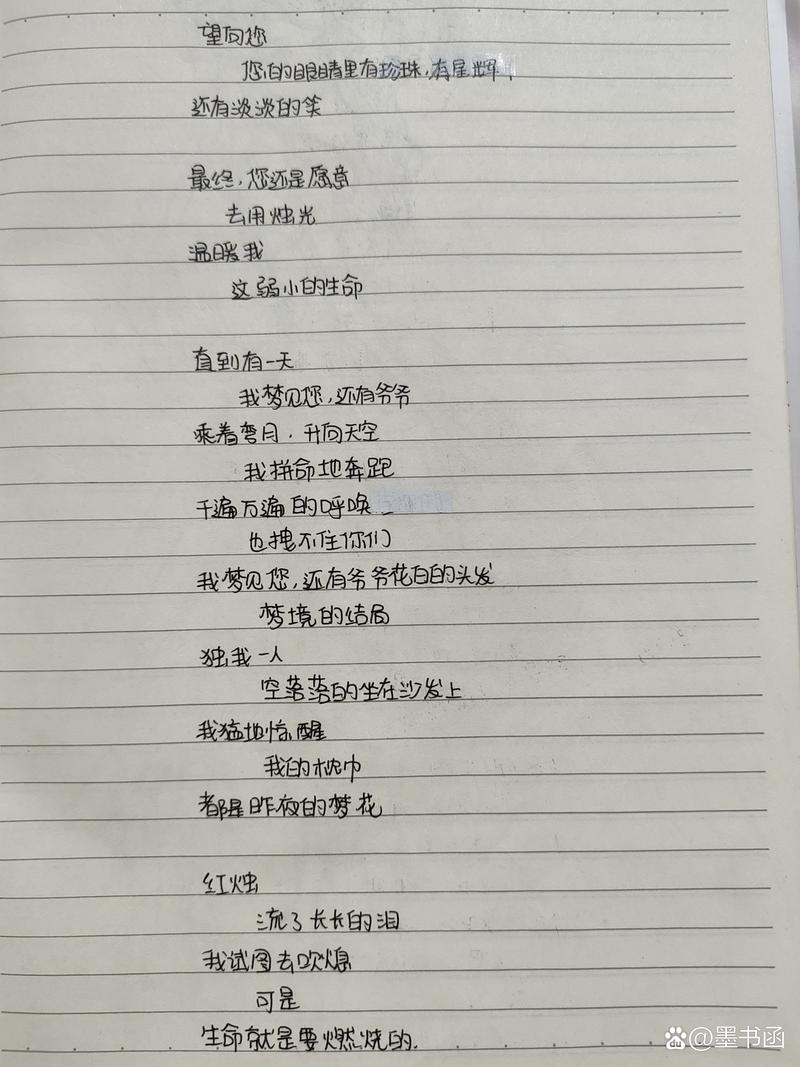 望向您
您的眼睛里有珍珠，有星辉，
还有淡淡的笑
最终，您还是愿意
去用烛光
温暖我
这弱小的生命
直到有一天
我梦见您，还有爷爷
乘着弯月，升向天空
我拼命地奔跑
千遍万遍的呼唤
也拽不住你们
我梦见您，还有爷爷花白的头发
梦境的结局
独我一人
空落落的坐在沙发上
我猛地惊醒
我的枕巾
都是昨夜的梦花
红烛
流了长长的泪
我试图去吹熄
可是
生命就是要燃烧的.
Bai du @墨书函